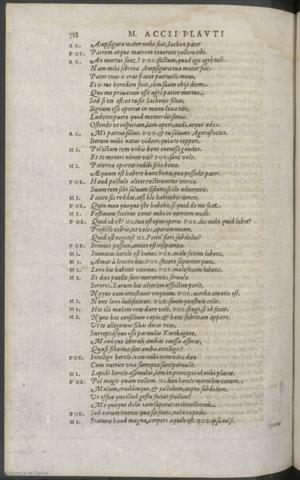 718 M. ACCII PLAVTI
AG. Ampsigura mater mihi fuit, Iachon pater
POE. Patrem atque matrem viuerent vellem tibi.
AG. An mortui sunt? POE. factum, quod ego ægrè tuli.
Nam mihi sobrina Ampsigura tua mater fuit.
Pater tuus is erat frater patruelis meus,
Et is me heredem fecit, cum suum obijt diem.
Quo me priuatum esse ægrè patior mortuo.
Sed si ita est, vt tu sis Iachonis filius,
Signum esse oportet in manu læua tibi,
Ludenti puero quod momordit simia.
Ostende vt inspiciam, aperi, audi, atque adest.
AG. Mi patrue salue. POE. & tu salue Agorastocles.
Iterum mihi natus videor, quia te repperi.
MI. rem vobis bene euenisse gaudeo.
Et te moneri nunc vis? POE. sanè volo.
MI. Paterna oportet reddi filio bona.
Æquum est habere hunc bona, quæ possedit pater.
POE. Haud postulo aliter, restituentur omnia.
Suam rem sibi saluam sistam, si illo aduenerit.
MI. Facito sis reddas, etsi hic habitabit tamen.
POE. Quin mea quoque iste habebit, si quid de me fiat.
MI. Festiuum facinus venit mihi in mentem modò.
POE. Quid id est? MI. tua est opus opera. POE. dic mihi quid lubet?
Profectò vteris, vt voles, operam meam.
Quid est negotij? MI. Potin' fieri subdolus?
POE. Inimico possum, amico est insipientia.
MI. Inimicus hercle est huius. POE. malè faxim lubens.
MI. Amat à lenone hic. POE. facere sapienter puto.
MI. Leno hic habitat vicinus. POE. malè faxim lubens.
MI. Ei duæ puellæ sunt meretrices seruulæ
Sorores. Earum hic alteram efflictim perit,
Neque eam incestauit vnquam. POE. acerba amatio est.
MI. Hunc leno ludificatur. POE. suum quæstum colit.
MI. Hic illi malam rem dare volt. POE. frugi, si id facit.
MI. Nunc hoc consilium capio, & hanc fabricam apparo.
Vt te allegemus filias dicas tuas,
Surreptasque esse paruulas Karthagine,
Manu liberali causa ambas asseras,
Quasi filiæ tuæ sint ambæ. intellegis?
POE. Intellego hercle. nam mihi item natæ duæ
Cum nutrice vna surreptæ sunt paruulæ.
MI. Lepidè hercle assimulas. iam in principio id mihi placet.
POE. Pol magis quàm vellem. MI. eu hercle mortalem catum,
Malum, crudumque, & callidum, atque subdolum,
Vt afflet quo illud gestu faciat facilius?
Me quoque dolis iam superat architectonem.
POE. Sed earum nutrix qua sit facie, mihi expedi.
MI. Statura haud magna, corpore aquilo est. POE. ipsa ea est.